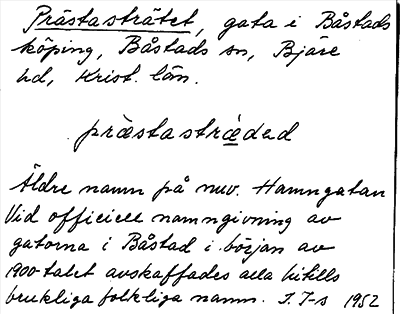 Prästasträtet, gata i Båstads
köping, Båstads sn, Bjäre
hd, Krist. län.
præstastræ̀ded
Äldre namn på nuv. Hamngatan
Vid officiell namngivning av
gatorna i Båstad i början av
1900-talet avskaffades alla hitills
brukliga folkliga namn. I. I-s 1952